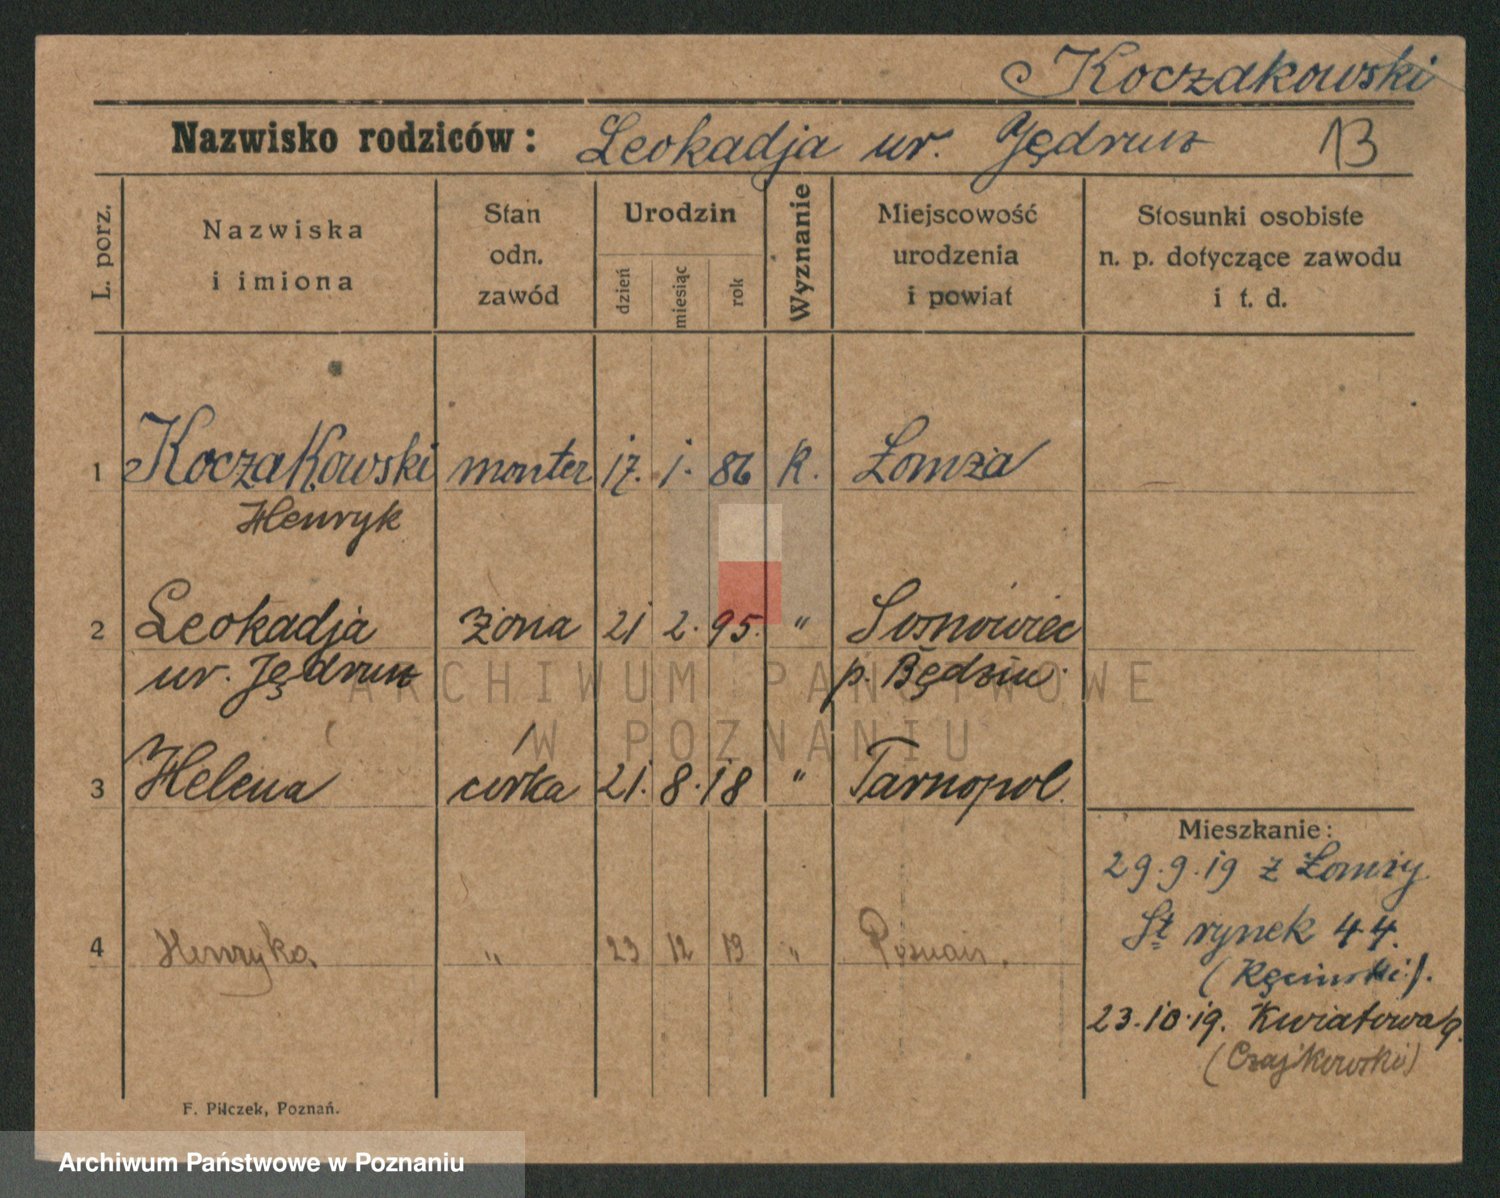 Koczakowski
Nazwisko rodziców: Leokadja ur. Jędrusz 13
L. porz.
Nazwiska
i imiona
Stan
odn.
zawód
Urodzin
dzień
miesiąc
rok
Wyznanie
Miejscowość
urodzenia
i powiat
Stosunki osobiste
n. p. dotyczące zawodu
i t. d.
1 Koczakowski monter 17. 1. 86 K. Łomża
Henryk
2 Leokadja żona 21 2. 95. " Sosnowiec
ur. Jędrusz p. Będzin
3 Helena córka 21. 8. 18 " Tarnopol.
Mieszkanie:
29.9.19 z Łomży
St rynek 44.
4 Henryka " 23 12 19 " Poznań.
(Kęciński).
23.10.19. Kwiatowa 9.
(Czajkowski)
F. Pilczek, Poznań.
ARCHIWUM PAŃSTWOWE
W POZNANIU
Archiwum Państwowe w Poznaniu